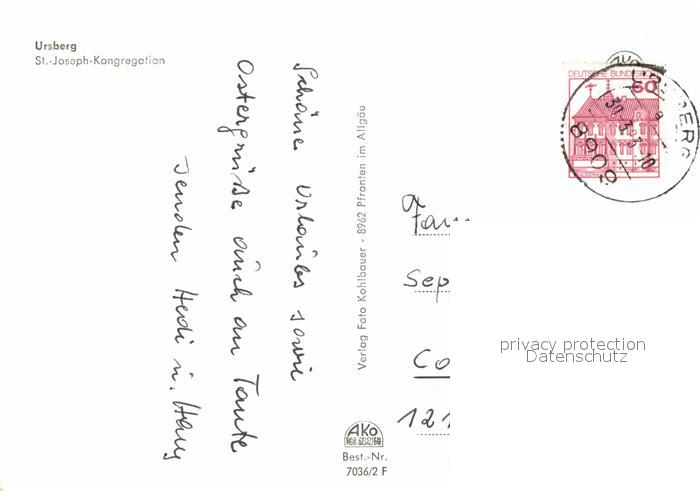 Ursberg
St.-Joseph-Kongregation
Schöne Urlaubs sowie
Ostergrüße auch an Tante
senden Hedi u. Hans
Verlag Foto Kohlbauer - 8962 Pfronten im Allgäu
AKO
Best.-Nr.
7036/2 F
DEUTSCHE BUNDESPOST
60
URSBERG
30.-3.83-10
8909
Fam
Sep
Co
121
privacy protection
Datenschutz